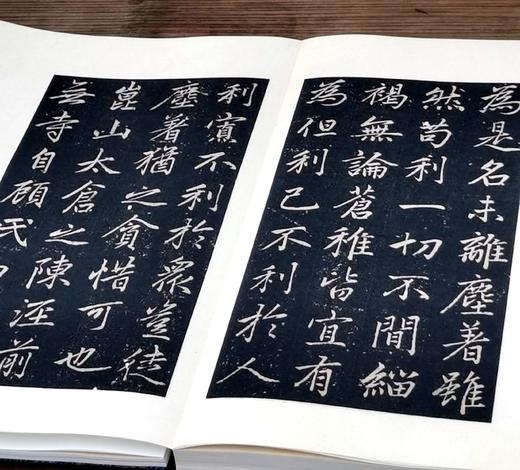 為是名未離塵著雖
然苟利一切不間緇
褐無論蒼稚皆宜有
為但利己不利於人
利賓不利於衆豈徒
塵著猶之貪惜可也
崑山太倉之陳涇前
無寺自顧氏